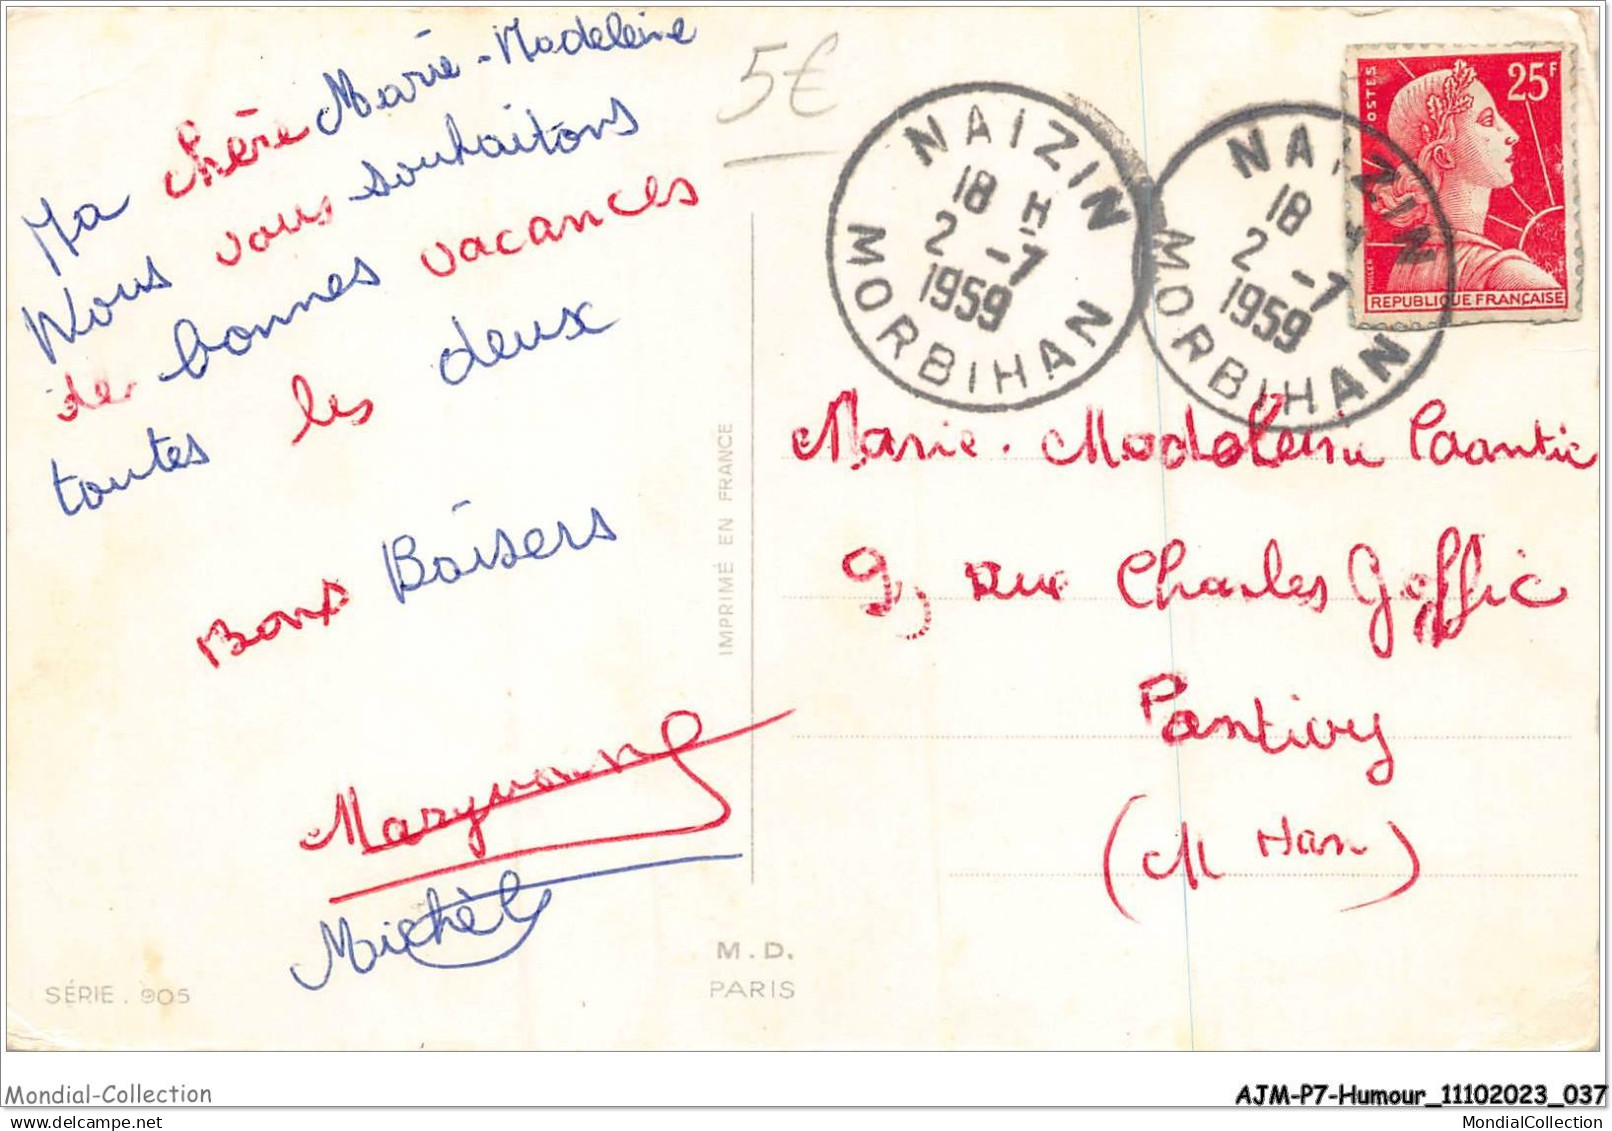 Ma chère Marie-Madeleine
Nous vous souhaitons
de bonnes vacances
toutes les deux
Bons Baisers
Maryvonne
Michèle
SÉRIE . 905
5€
IMPRIMÉ EN FRANCE
M. D.
PARIS
NAIZIN
18 H
2 -7
1959
MORBIHAN
NAIZIN
18 H
2 -7
1959
MORBIHAN
POSTES
25F
MULLER
REPUBLIQUE FRANÇAISE
Marie-Madeleine
9, rue Charles Joffic
Pontivy
(M Han)
Mondial-Collection
AJM-P7-Humour_11102023_037
MondialCollection.com